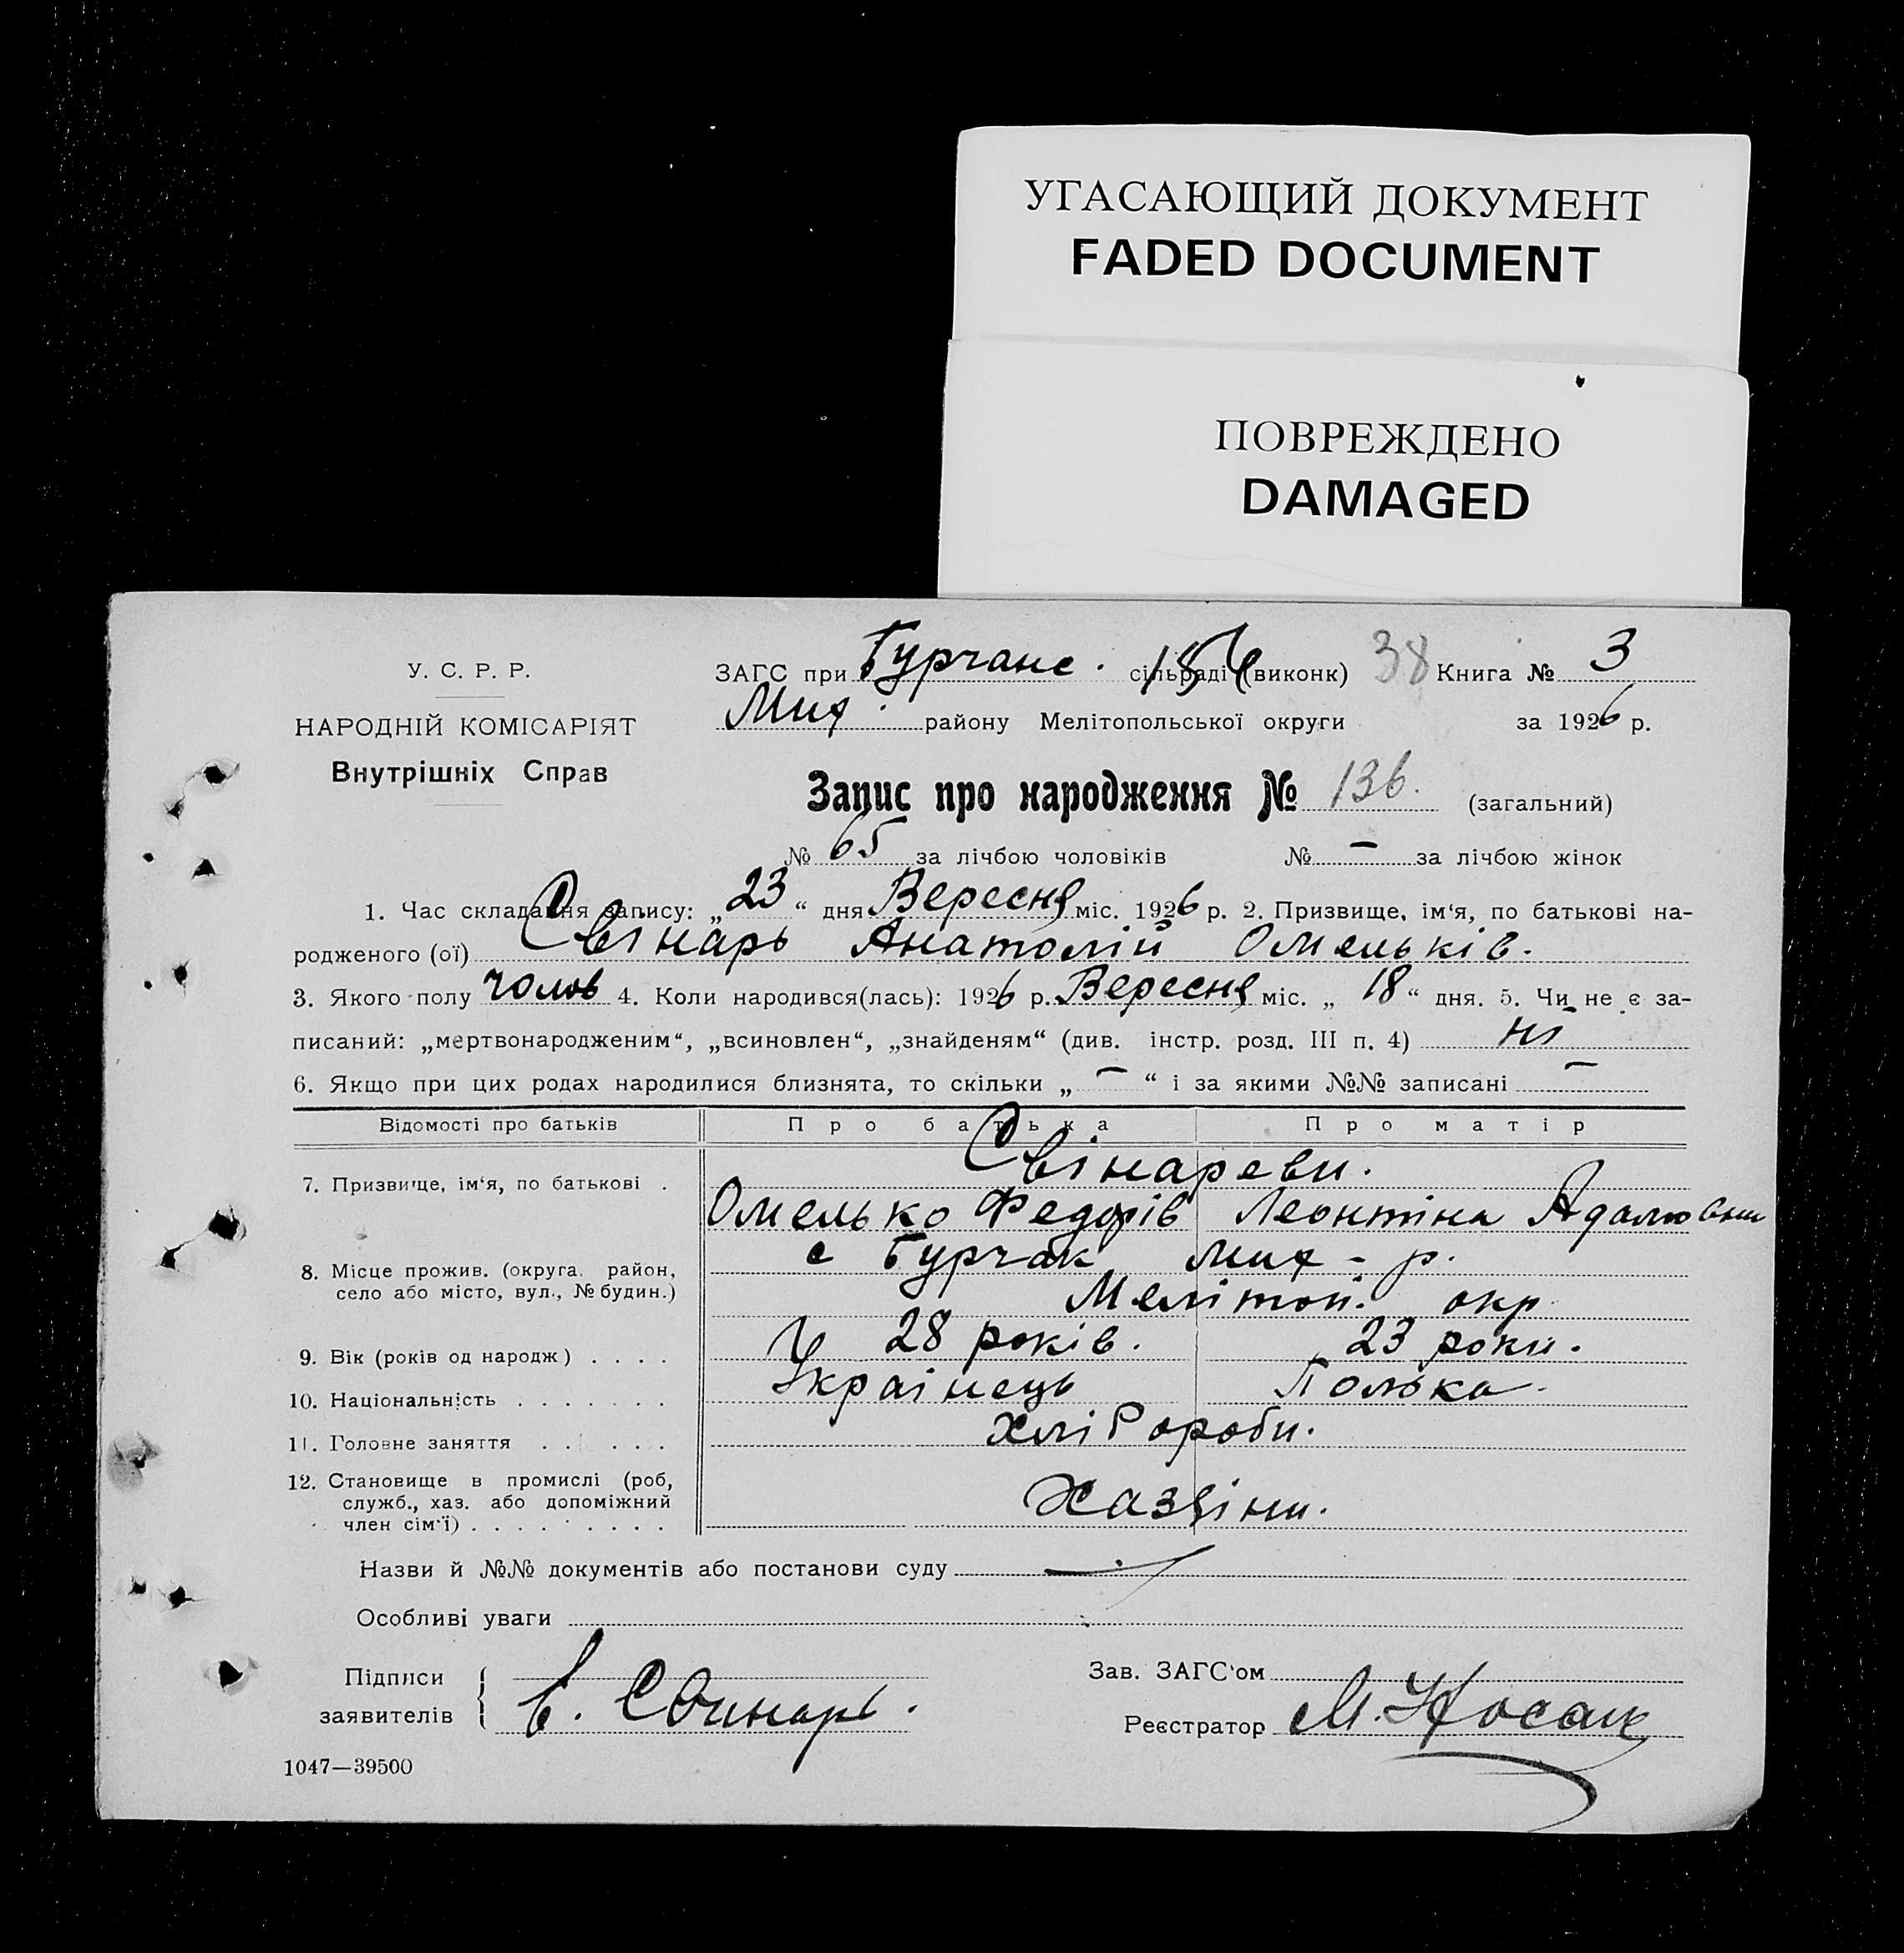 УГАСАЮЩИЙ ДОКУМЕНТ
FADED DOCUMENT
ПОВРЕЖДЕНО
DAMAGED
У. С. Р. Р.
НАРОДНІЙ КОМІСАРІЯТ
Внутрішніх Справ
ЗАГС при Гурчанс. сільраді (виконк) 38 Книга № 3
Мих. району Мелітопольської округи за 1926 р.
Запис про народження № 136. (загальний)
№ 65 за лічбою чоловіків № — за лічбою жінок
1. Час складання запису: „23“ дня Вересня міс. 1926 р. 2. Призвище, ім‘я, по батькові на-
родженого (ої) Свінарь Анатолій Омельків.
3. Якого полу чолов 4. Коли народився(лась): 1926 р. Вересня міс. „18“ дня. 5. Чи не є за-
писаний: „мертвонародженим“, „всиновлен“, „знайденям“ (див. інстр. розд. III п. 4) ні
6. Якщо при цих родах народилися близнята, то скільки „—“ і за якими №№ записані —
Відомості про батьків Про батька Про матір
7. Призвище, ім‘я, по батькові . Свінареви.
Омелько Федорів Леонтіна
8. Місце прожив. (округа, район, село або місто, вул., № будин.) с Гурчак Мих - р.
Мелітоп. окр
9. Вік (років од народж) . . . . 28 років. 23 роки.
10. Національність . . . . . . . Українець Полька.
11. Головне заняття . . . . . . Хліборобы.
12. Становище в промислі (роб, служб., хаз. або допоміжний член сім‘ї) . . . . . . . . . Хазяіни.
Назви й №№ документів або постанови суду
Особливі уваги
Підписи
заявителів Е. Свинарь.
Зав. ЗАГС‘ом
Реєстратор М. Носак
1047—39500